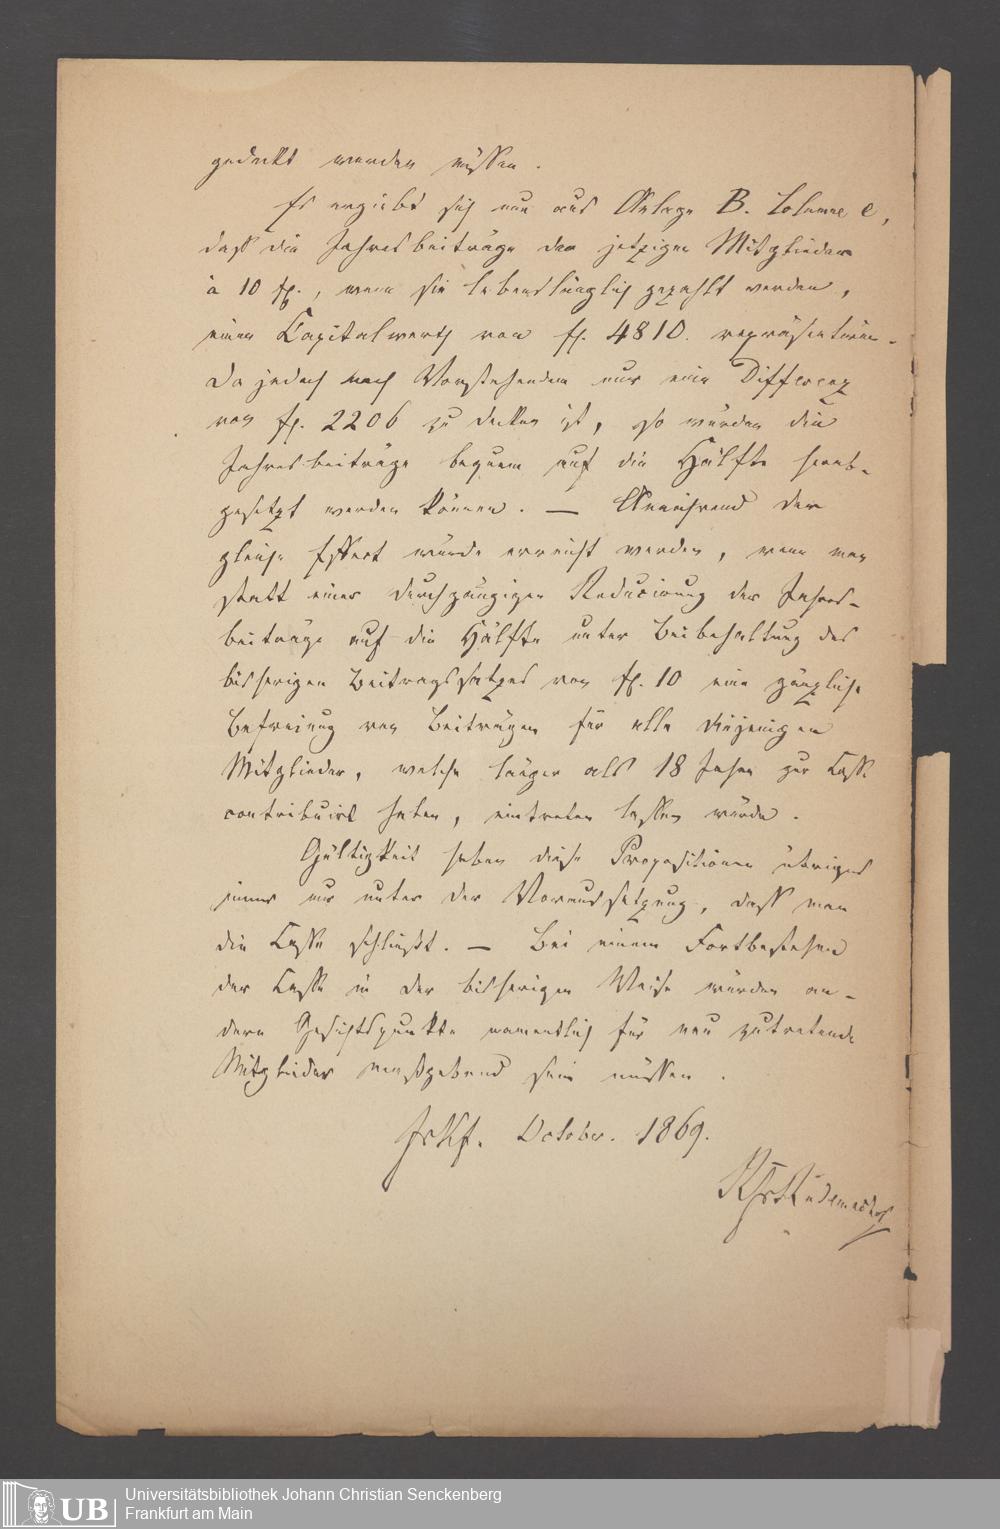 gedeckt werden müssen.
Es ergiebt sich nun aus Anlage B. Columne e,
dass die Jahresbeiträge der jetzigen Mitglieder
à 10 fl., wenn sie lebenslänglich gezahlt werden,
einen Capitalwerth von fl. 4810. repräsentiren.
Da jedoch nach Vorstehendem nur eine Differenz
von fl. 2206 zu decken ist, so würden die
Jahresbeiträge bequem auf die Hälfte herab-
gesetzt werden können. — Annähernd der
gleiche Effect würde erreicht werden, wenn man
statt einer durchgängigen Reducirung der Jahres-
beiträge auf die Hälfte unter Beibehaltung des
bisherigen Beitragssatzes von fl. 10 eine gänzliche
Befreiung von Beiträgen für alle diejenigen
Mitglieder, welche länger als 18 Jahre zur Casse
contribuirt haben, eintreten lassen würde.
Gültigkeit haben diese Propositionen übrigens
immer nur unter der Voraussetzung, dass man
die Casse schliesst. — Bei einem Fortbestehen
der Casse in der bisherigen Weise würden an-
dere Gesichtspunkte namentlich für neu zutretende
Mitglieder massgebend sein müssen.
Frkf. October. 1869.
Universitätsbibliothek Johann Christian Senckenberg
Frankfurt am Main
UB